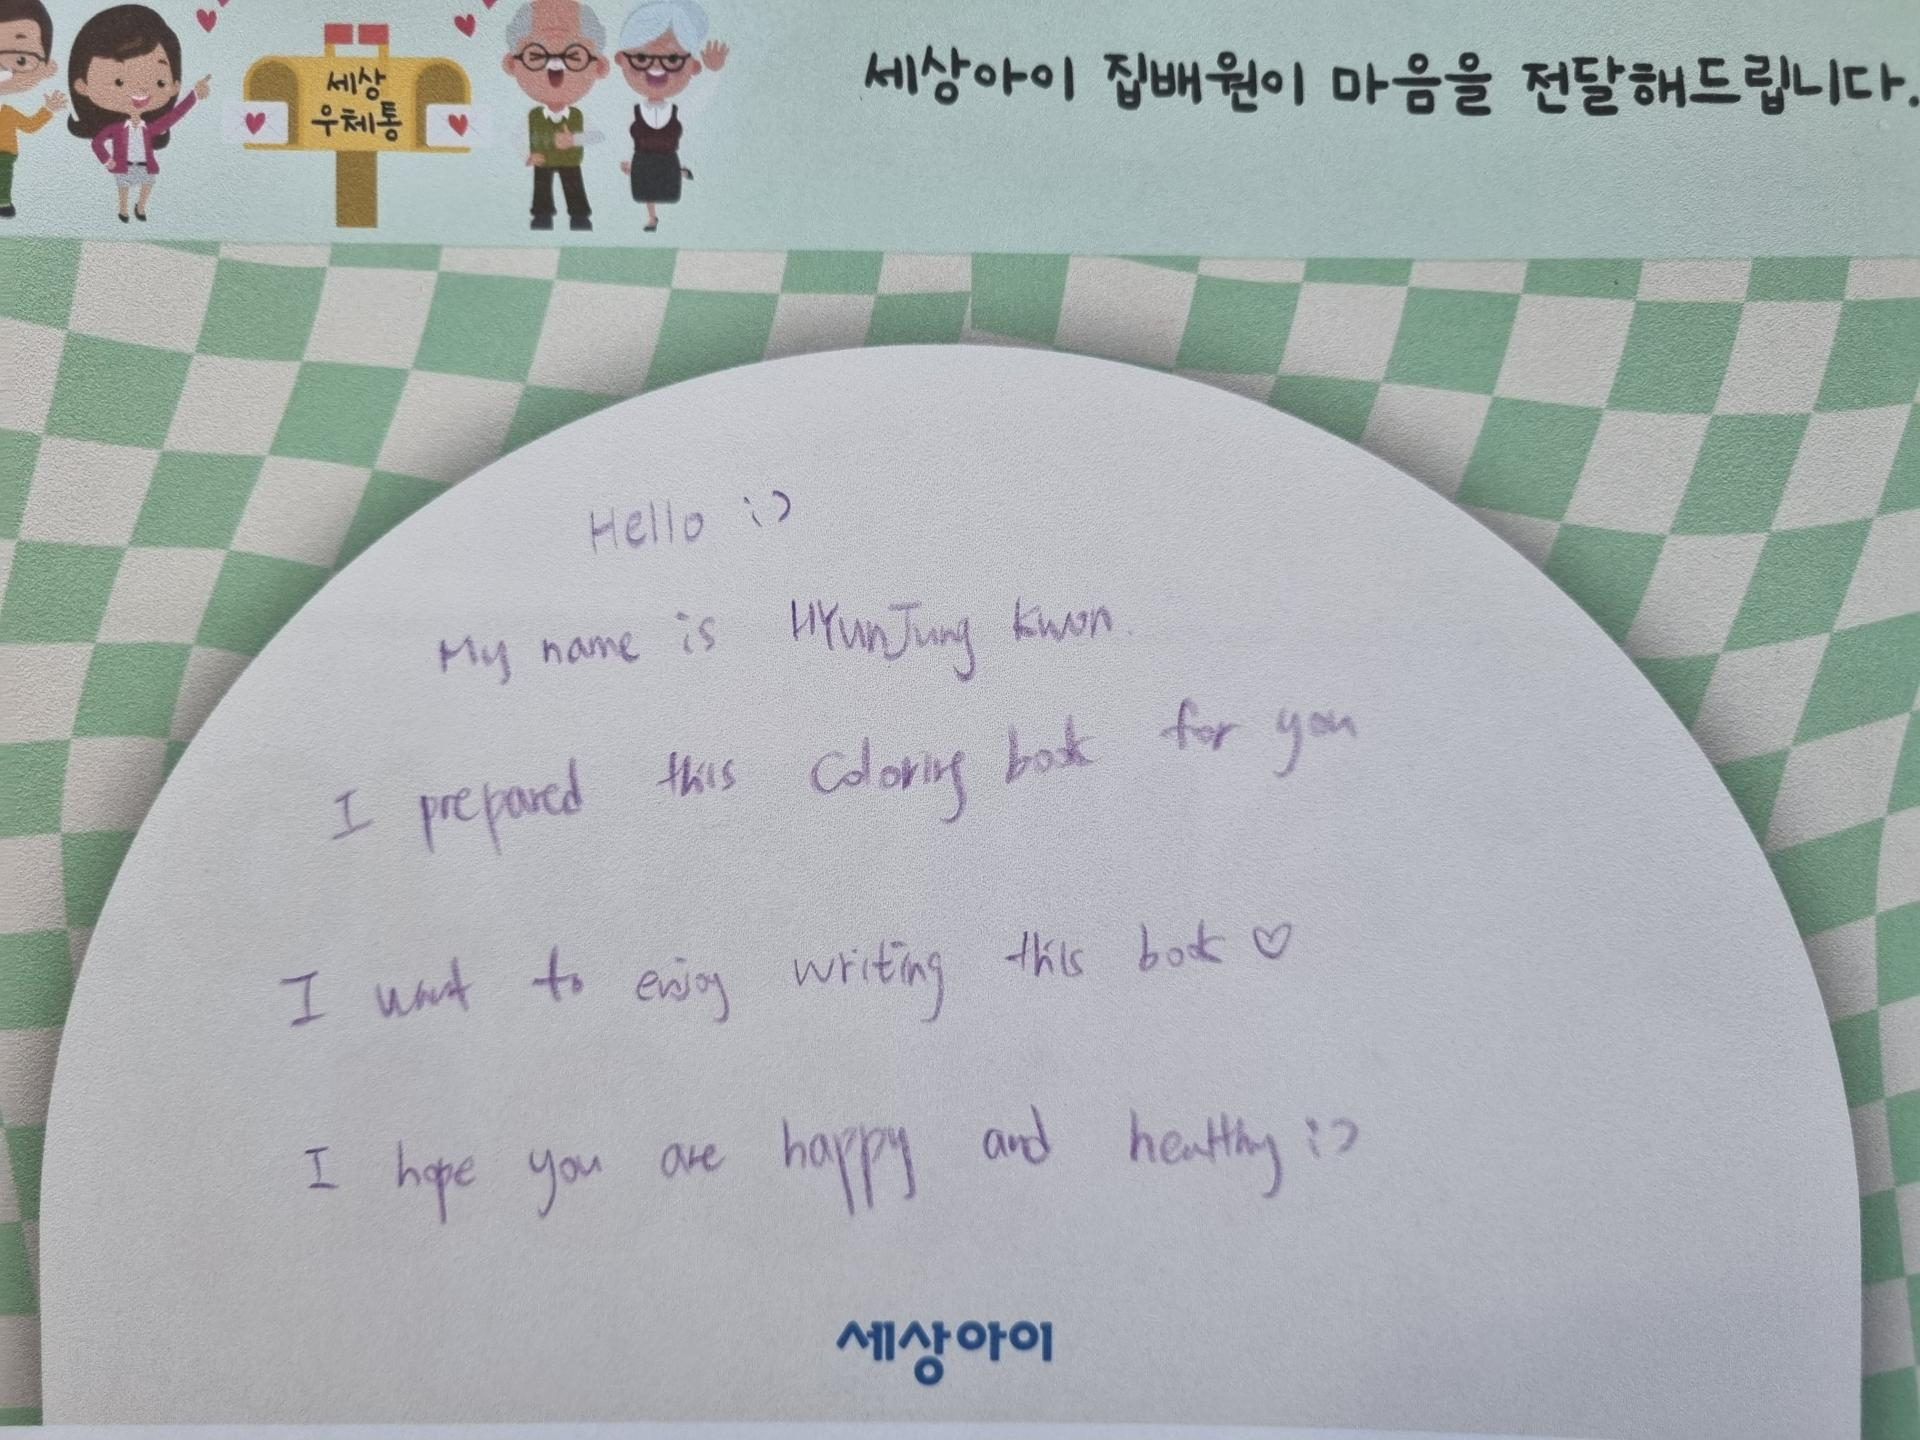 세상
우체통
세상아이 집배원이 마음을 전달해드립니다.
Hello :)
My name is HYunJung kwon.
I prepared this coloring book for you
I want to enjoy writing this book ♡
I hope you are happy and healthy :)
세상아이